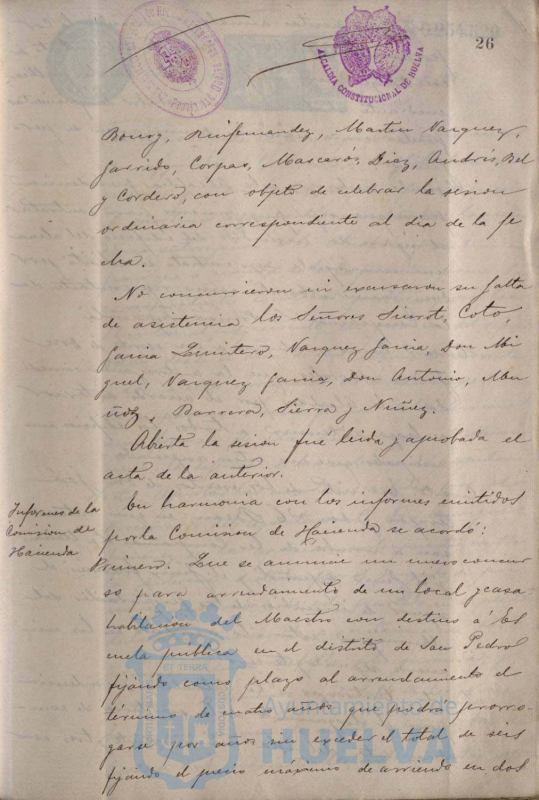 26
ALCALDIA CONSTITUCIONAL DE HUELVA
Bourg, Rinfernandez, Martin Vazquez,
Garrido, Corpas, Mascarós, Diaz, Andrés, Bel
y Cordero, con objeto de celebrar la sesion
ordinaria correspondiente al dia de la fe
cha.
No concurrieron ni excusaron su falta
de asistencia los Señores Siurot, Coto,
Garcia Quintero, Vazquez Garcia, Don Mi
guel, Vazquez Garcia, Don Antonio, Mu
ñoz, Barrera, Sierra y Nuñez.
Abierta la sesion fué leida y aprobada el
acta de la anterior.
Informes de la
Comision de
Hacienda
En harmonia con los informes emitidos
por la Comision de Hacienda se acordó:
Primero. Que se anuncie un nuevo concur
so para arrendamiento de un local y casa
habitacion del Maestro con destino á Es
cuela pública en el distrito de San Pedro
fijando como plazo al arrendamiento el
término de cuatro años que podrá prorro
garse por años sin exceder el total de seis
fijando el precio máximo de arriendo en dos
Ayuntamiento de
HUELVA